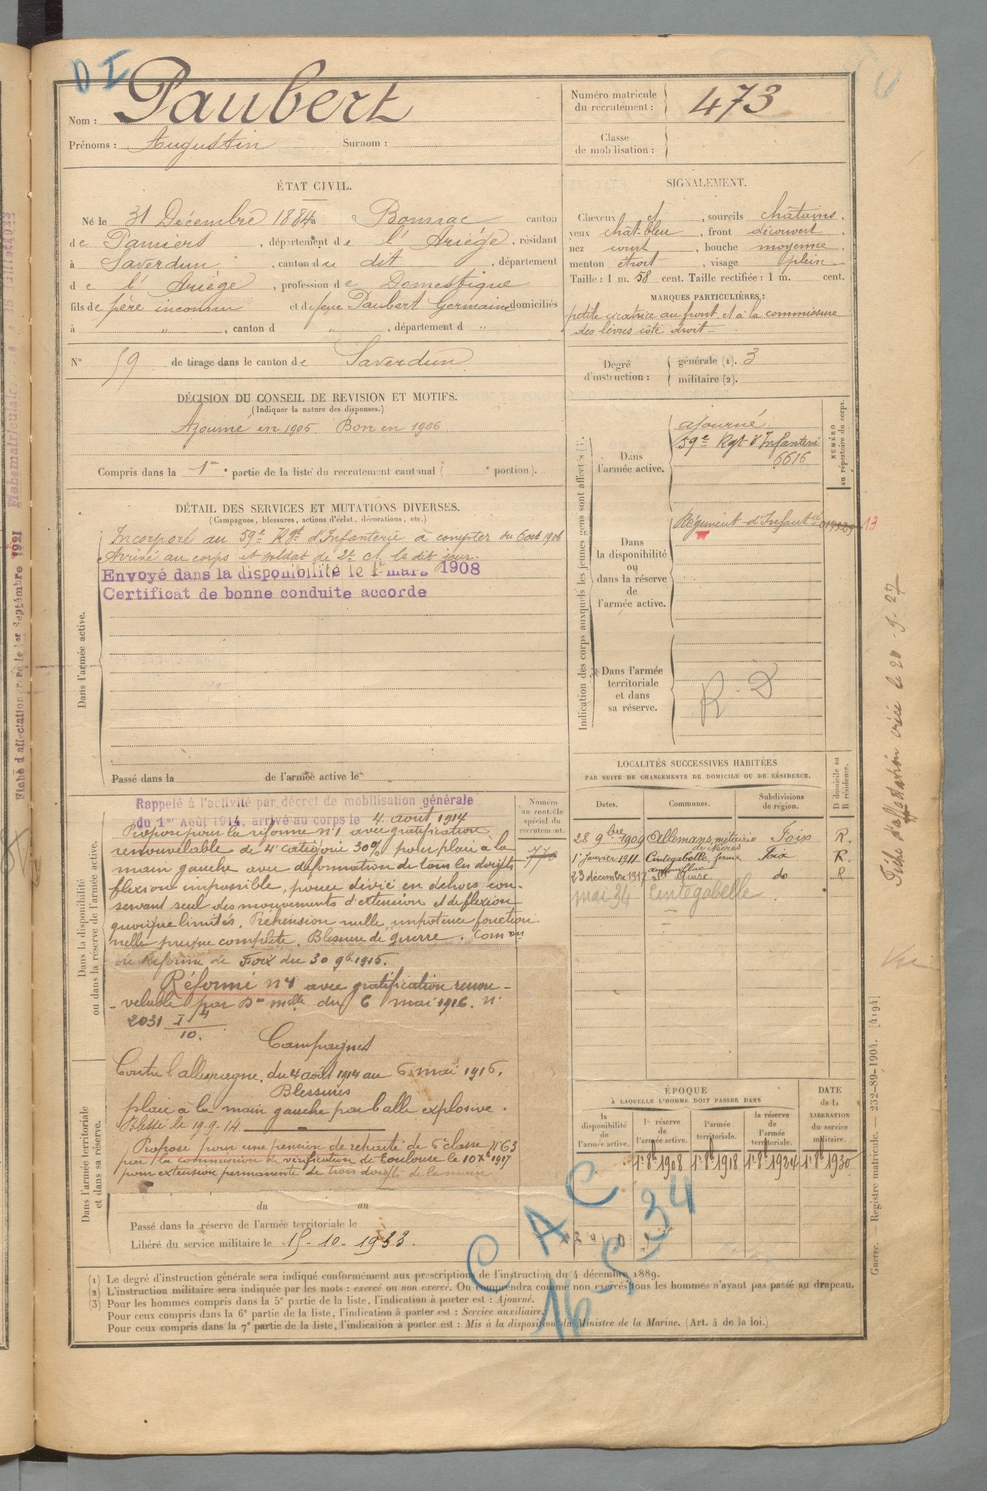 DI
Nom : Paubert
Prénoms : Augustin Surnom :
Numéro matricule du recrutement : 473
Classe de mobilisation :
ÉTAT CIVIL.
Né le 31 Décembre 1884 à Bonnac canton
de Pamiers, département de l'Ariége, résidant
à Saverdun, canton du dit, département
de l'Ariége, profession de Domestique
fils de père inconnu et de Paubert Germaine domiciliés
à " , canton d " , département d "
N° 59 de tirage dans le canton de Saverdun
SIGNALEMENT.
Cheveux et, sourcils châtains,
yeux chât-bleu, front découvert,
nez court, bouche moyenne
menton étroit, visage plein
Taille : 1 m. 58 cent. Taille rectifiée : 1 m. cent.
MARQUES PARTICULIÈRES :
petite cicatrice au front et à la commissure
des lèvres côté droit
Degré d'instruction : générale (1). 3
militaire (2).
DÉCISION DU CONSEIL DE REVISION ET MOTIFS.
(Indiquer la nature des dispenses.)
Ajourné en 1905 Bon en 1906
Compris dans la 1re partie de la liste du recrutement cantonal ( portion).
DÉTAIL DES SERVICES ET MUTATIONS DIVERSES.
(Campagnes, blessures, actions d'éclat, décorations, etc.)
Dans l'armée active.
Incorporé au 59e Rgt d'Infanterie à compter du 6 oct 1906
Arrivé au corps et soldat de 2e cl le dit jour.
Envoyé dans la disponibilité le 1er mars 1908
Certificat de bonne conduite accordé
Passé dans la de l'armée active le
Indication des corps auxquels les jeunes gens sont affectés
NUMÉRO au répertoire du corps.
Dans l'armée active.
ajourné
59e Rgt d'Infanterie
6616
Dans la disponibilité ou dans la réserve de l'armée active.
Régiment d'Infantie
13
Dans l'armée territoriale et dans sa réserve.
R. D
Dans la disponibilité ou dans la réserve de l'armée active.
Rappelé à l'activité par décret de mobilisation générale
du 1er Août 1914, arrivé au corps le 4 août 1914
Proposé pour la réforme n°1 avec gratification
renouvelable de 4e catégorie 30% pour plaie à la
main gauche avec déformation de tous les doigts
flexion impossible, pouce dévié en dehors con-
servant seul des mouvements d'extension et de flexion
quoique limités. Préhension nulle, impotence fonction-
nelle presque complète. Blessure de guerre. Com on
de Réforme de Foix du 30 9bre 1915.
Réformé n°1 avec gratification renou-
velable par Don mlle du 6 mai 1916. n°
2031 I/4
10.
Campagnes
Contre l'allemagne, du 4 août 1914 au 6 mai 1916.
Blessures
plaie à la main gauche par balle explosive.
Blessé le 19.9.14
Proposé pour une pension de retraite de 6e classe N°63
par la commission de vérification de Toulouse le 10 Xbre 1917
pour extension permanente de trois doigts de la main
Numéro au contrôle spécial du recrutement.
Dans l'armée territoriale et dans sa réserve.
du au
Passé dans la réserve de l'armée territoriale le
Libéré du service militaire le 15-10-1933.
LOCALITÉS SUCCESSIVES HABITÉES
PAR SUITE DE CHANGEMENTS DE DOMICILE OU DE RÉSIDENCE.
Dates. Communes. Subdivisions de région. D domicile ou R résidence.
28 9bre 1909 Allemans, métairie Foix R.
1er Janvier 1911 Cintegabelle, Foix R.
23 décembre 1917 St Quirc do R
mai 34 Cintegabelle
ÉPOQUE
À LAQUELLE L'HOMME DOIT PASSER DANS
DATE de la LIBÉRATION du service militaire.
la disponibilité de l'armée active. la réserve de l'armée active. l'armée territoriale. la réserve de l'armée territoriale.
1er 8bre 1908 1er 8bre 1918 1er 8bre 1924 1er 8bre 1930
CAC
16-5-34
(1) Le degré d'instruction générale sera indiqué conformément aux prescriptions de l'instruction du 4 décembre 1889.
(2) L'instruction militaire sera indiquée par les mots : exercé ou non exercé. On comprendra comme non exercés tous les hommes n'ayant pas passé au drapeau.
(3) Pour les hommes compris dans la 5e partie de la liste, l'indication à porter est : Ajourné.
Pour ceux compris dans la 6e partie de la liste, l'indication à porter est : Service auxiliaire.
Pour ceux compris dans la 7e partie de la liste, l'indication à porter est : Mis à la disposition du Ministre de la Marine. (Art. 4 de la loi.)
Guerre. — Registre matricule. — 232-89-1904. [4194]
Fiche d'affectation créée le 20-9-27
Fiche d'affectation créée le 1er Septembre 1921